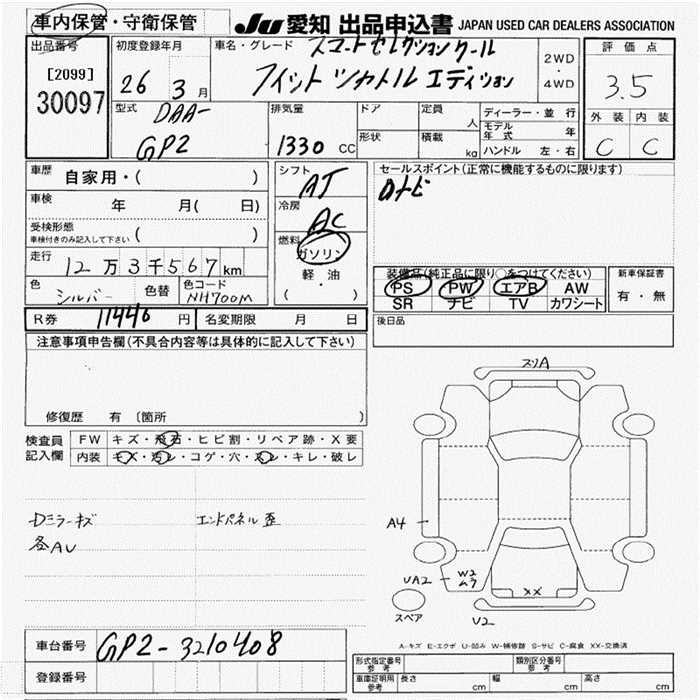 車内保管・守衛保管 JU 愛知 出品申込書 JAPAN USED CAR DEALERS ASSOCIATION
出品番号 初度登録年月 車名・グレード スマートセレクション クール 2WD・4WD 評価点
[2099] 26 3月 フィット シャトル エディション 3.5
30097 型式 DAA- 排気量 ドア 定員 人 ディーラー・並行 外装 内装
GP2 1330 CC 形状 積載 kg モデル年式 年 C C
ハンドル 左・右
車歴 自家用・( ) シフト AT セールスポイント(正常に機能するものに限ります)
車検 年 月( 日) 冷房 AC ロナビ
受検形態 ( )
車検付きのみ記入して下さい
燃料 ガソリン
走行 12万3千567km 軽・油
( )
装備品(純正品に限り○をつけてください) 新車保証書
PS PW エアB AW 有・無
SR ナビ TV カワシート
色 シルバー 色替 色コード NH700M
R券 11440円 名変期限 月 日 後日品
注意事項申告欄(不具合内容等は具体的に記入して下さい)
修復歴 有 〔箇所 )
検査員記入欄 FW キズ・飛石・ヒビ割・リペア跡・X要
内装 キズ・汚レ・コゲ・穴・スレ・キレ・破レ
Dミラーキズ エンドパネル歪
各AU
スリA
A4
UA2 W2
ムラ
XX
スペア U2
A-キズ E-エクボ U-凹み W-補修跡 S-サビ C-腐食 XX-交換済
車台番号 GP2-3210408
登録番号
形式指定番号 参考 類別区分番号 参考
車庫証明用 参考 長さ cm 幅 cm 高さ cm